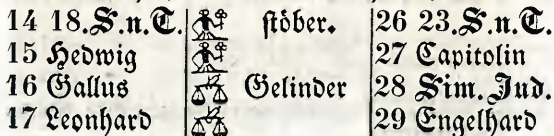 14 18.S.n.T. ſtöber. 26 23.S.n.T.
15 Hedwig 27 Capitolin
16 Gallus Gelinder 28 Sim. Jud.
17 Leonhard 29 Engelhard